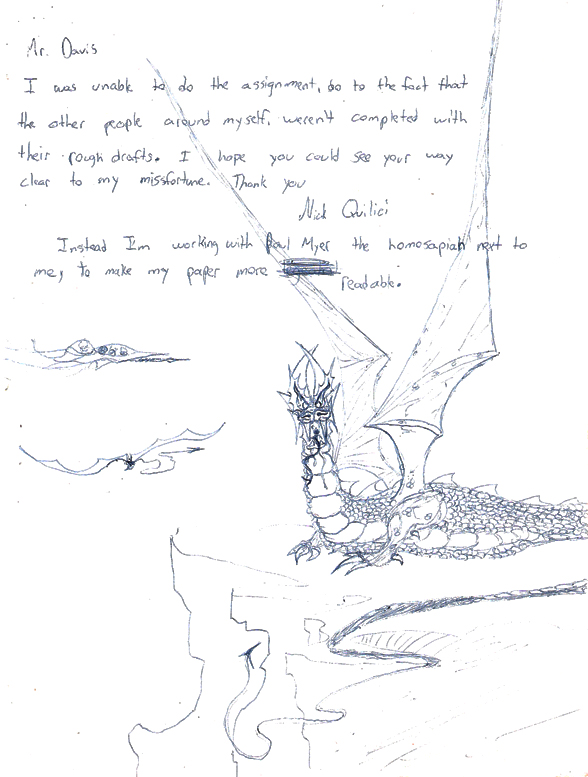 Mr. Davis
I was unable to do the assignment, do to the fact that
the other people around myself, weren't completed with
their rough drafts. I hope you could see your way
clear to my missfortune. Thank you
Nick Quilici
Instead I'm working with Paul Myer the homosapian next to
me, to make my paper more
readable.